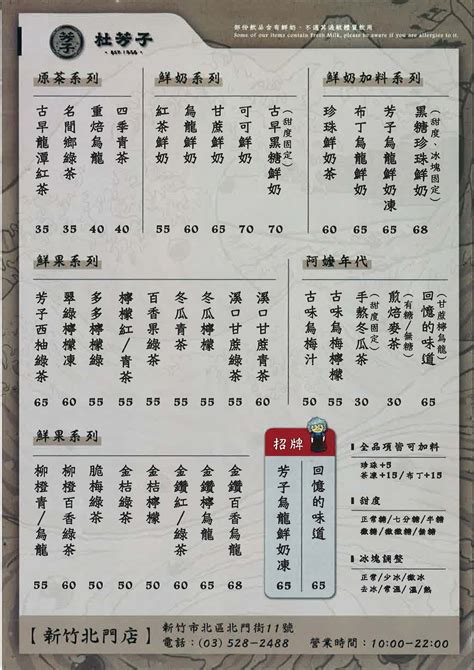 部份飲品含有鮮奶，不適其過敏體質飲用
Some of our items contain Fresh Milk, please to aware if you are allergies to it.
芳子
杜芳子
原茶系列
古早龍潭紅茶 35
名間鄉綠茶 35
重焙烏龍 40
四季青茶 40
鮮奶系列
紅茶鮮奶 55
烏龍鮮奶 60
甘蔗鮮奶 65
可可鮮奶 70
古早黑糖鮮奶（甜度固定） 70
鮮奶加料系列
珍珠鮮奶 60
布丁烏龍鮮奶 65
芳子烏龍鮮奶 65
黑糖珍珠鮮奶（甜度、冰塊固定） 68
鮮果系列
芳子西柚綠茶 65
翠綠檸檬 55
多多檸檬 60
檸檬紅/青茶 55
百香果綠茶 55
冬瓜青茶 50
冬瓜檸檬 50
溪口甘蔗青茶 55
溪口甘蔗檸檬 60
阿嬤年代
古味烏梅汁 50
古味烏梅檸檬 55
手熬冬瓜茶（甜度固定） 30
煎焙麥茶（有糖/無糖） 30
回憶的味道（甘蔗檸烏龍） 65
鮮果系列
柳橙青/烏龍 55
柳橙百香綠茶 60
脆梅綠茶 50
金桔綠茶 50
金桔檸檬 50
金鑽紅/綠茶 60
金鑽檸檬 60
金鑽百香果/烏龍 68
招牌
芳子烏龍鮮奶凍 65
回憶的味道 65
全品項皆可加料
珍珠+5
茶凍+15/布丁+15
甜度
正常糖/七分糖/半糖
微糖/微微糖/無糖
冰塊調整
正常/少冰/微冰
去冰/常溫/溫/熱
【新竹北門店】
新竹市北區北門街11號
電話：(03) 528-2488
營業時間：10:00-22:00